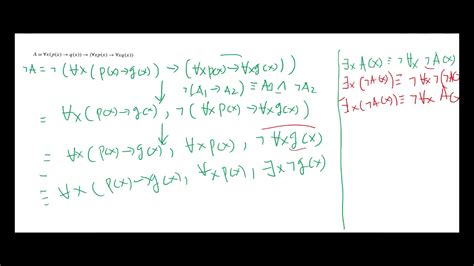 A = ∀x(p(x) → q(x)) → (∀xp(x) → ∀xq(x))
¬A = ¬(∀x(p(x)→g(x)) → (∀xp(x)→∀xg(x)))
¬(A₁→A₂) ≡ A₁ ∧ ¬A₂
= ∀x(p(x)→g(x)), ¬(∀xp(x)→∀xg(x))
≡ ∀x(p(x)→g(x), ∀xp(x), ¬∀xg(x)
≡ ∀x(p(x)→g(x), ∀xp(x), ∃x¬g(x)
∃x A(x) ≡ ¬∀x ¬A(x)
∃x(¬A(x)) ≡ ¬∀x¬(¬A(x)
∃x(¬A(x)) ≡ ¬∀x A(x)